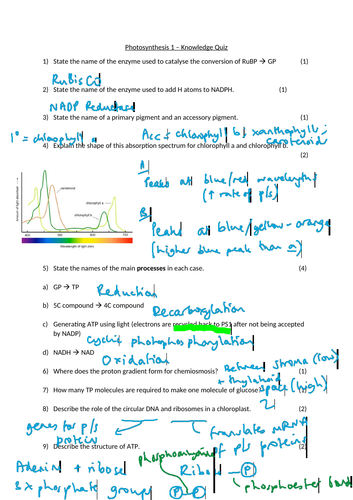 Photosynthesis 1 – Knowledge Quiz
1) State the name of the enzyme used to catalyse the conversion of RuBP → GP (1)
RuBisCo
2) State the name of the enzyme used to add H atoms to NADPH. (1)
NADP Reductase
3) State the name of a primary pigment and an accessory pigment. (1)
1° = chlorophyll a Acc = chlorophyll b / xanthophylls / carotenoid
4) Explain the shape of this absorption spectrum for chlorophyll a and chlorophyll b. (2)
A
Peaks at blue/red wavelengths
(↑ rate of p/s)
B
Peaks at blue/yellow-orange
(higher blue peak than a)
Amount of light absorbed
carotenoid
chlorophyll a
chlorophyll b
Wavelength of light (nm)
5) State the names of the main processes in each case. (4)
a) GP → TP
Reduction
b) 5C compound → 4C compound
Decarboxylation
c) Generating ATP using light (electrons are recycled back to PS1 after not being accepted
by NADP)
Cyclic photophosphorylation
d) NADH → NAD
Oxidation
6) Where does the proton gradient form for chemiosmosis? (1)
Between stroma (low)
+ thylakoid space (high)
7) How many TP molecules are required to make one molecule of glucose?
2
8) Describe the role of the circular DNA and ribosomes in a chloroplast. (2)
genes for p/s
proteins
translate mRNA
of p/s proteins
9) Describe the structure of ATP. (2)
Adenine + ribose
3 x phosphate groups
Ribose - P
P - P
phosphoester bond